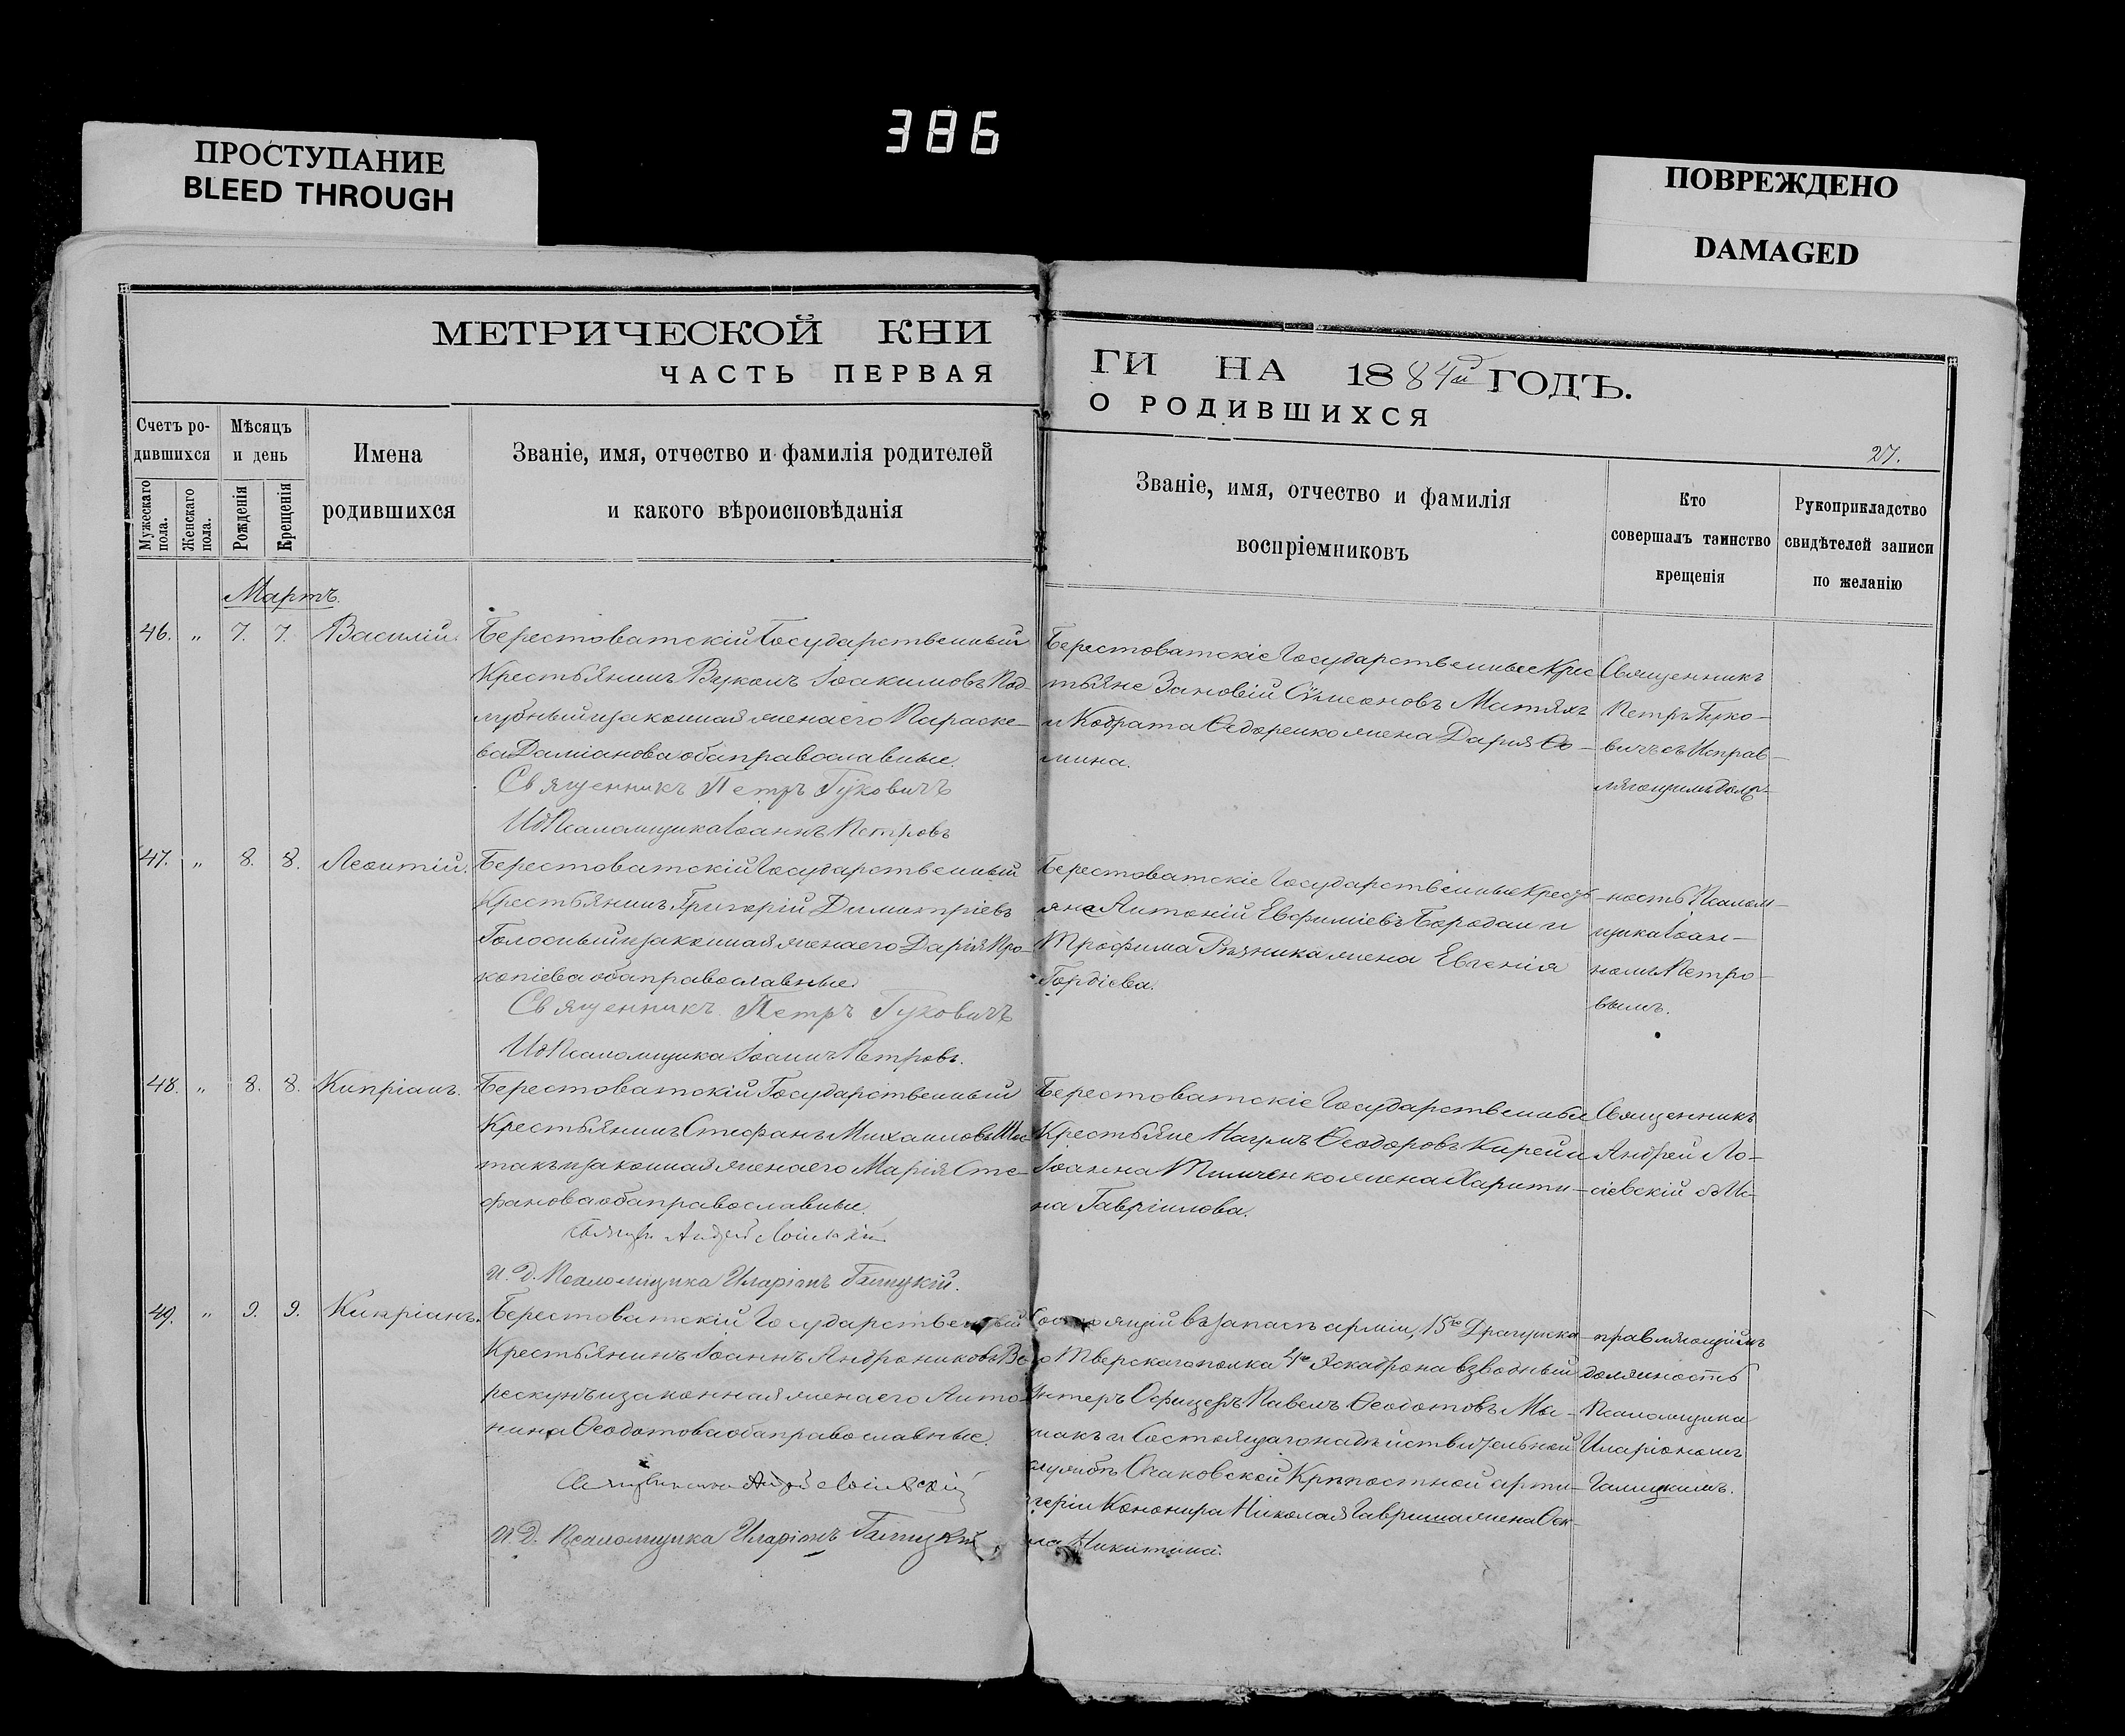 386
ПРОСТУПАНИЕ
BLEED THROUGH
ПОВРЕЖДЕНО
DAMAGED
МЕТРИЧЕСКОЙ КНИ
ЧАСТЬ ПЕРВАЯ
ГИ НА 1884й ГОДЪ.
О РОДИВШИХСЯ
27.
Счетъ ро-
дившихся
Мужескаго пола.
Женскаго пола.
Мѣсяцъ
и день
Рожденія
Крещенія
Имена
родившихся
Званіе, имя, отчество и фамилія родителей
и какого вѣроисповѣданія
Званіе, имя, отчество и фамилія
воспріемниковъ
Кто
совершалъ таинство
крещенія
Рукоприкладство
свидѣтелей записи
по желанію
Мартъ.
46. „ 7. 7. Василій.
Берестоватскій Государственный
Крестьянинъ Вуколъ Іоакимовъ Под-
лубный и законная жена его Параске-
ва Даміанова оба православные.
Священникъ Петръ Гуковичъ
ИД Псаломщика Іоаннъ Петровъ
Берестоватскіе Государственные Крес
тьяне Зановій Сѵмеоновъ Матяхъ
и Кодрата Ѳедоренко жена Дарія Ѳо-
мина.
Священникъ
Петръ Гуко-
вичъ съ Исправ-
ляющимъ долж-
47. „ 8. 8. Леонтій.
Берестоватскій Государственный
Крестьянинъ Григорій Димитріевъ
Голосный и законная жена его Дарія Про-
копіева оба православные.
Священникъ Петръ Гуковичъ
ИД Псаломщика Іоаннъ Петровъ.
Берестоватскіе Государственные Кресть
яне Антоній Евфиміевъ Бородан и
Трофима Рѣзника жена Евгенія
Гордіева.
ность Псалом-
щика Іоан-
номъ Петро-
вымъ.
48. „ 8. 8. Кипріанъ.
Берестоватскій Государственный
Крестьянинъ Стефанъ Михаиловъ
такъ и законная жена его Марія Сте-
фанова оба православные.
Андрей
И. Д. Псаломщика Иларіонъ Галицкій.
Берестоватскіе Государственные
Крестьяне Наумъ Ѳеодоровъ Кирей и
Іоанна Тимченко жена Харити-
на Гавріилова.
Священникъ
Андрей Ло-
сіевскій съ Ис-
49. „ 9. 9. Кипріанъ.
Берестоватскій Государственный
Крестьянинъ Іоаннъ Андрониковъ Ве
рескунъ и законная жена его Анто-
нина Ѳеодотова оба православные.
Священникъ Андрей Лосіевскій
И. Д. Псаломщика Иларіонъ Галицкій
Состоящій въ запасѣ арміи, 15го Драгунска-
го Тверскаго полка 4го Эскадрона взводный
Унтеръ Офицеръ Павелъ Ѳеодотовъ
макъ и Состоящаго на дѣйствительной
службѣ Очаковской Крѣпостной арти-
леріи Канонира Николая Гавриша жена Ѳек-
ла Никитина.
правляющимъ
должность
Псаломщика
Иларіономъ
Галицкимъ.